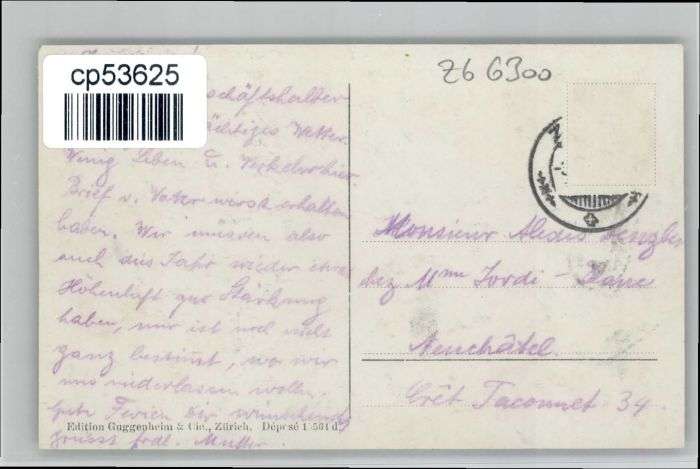 cp53625
Z6 6300
schäftshalter
Wetter.
Wenig Leben u. Verkehr hier.
Brief v. Vater wirst erhalten
haben. Wir müssen also
auch dies Jahr wieder
Höhenluft zur Stärkung
haben, nur ist noch nicht
ganz bestimt, wo wir
uns niederlassen wollen.
Gute Ferien dir wünschend
grüsst frdl. Mutter.
Monsieur
chez Mme Jordi -
Neuchâtel.
Crêt Taconnet 34.
Edition Guggenheim & Cie., Zürich. Déposé